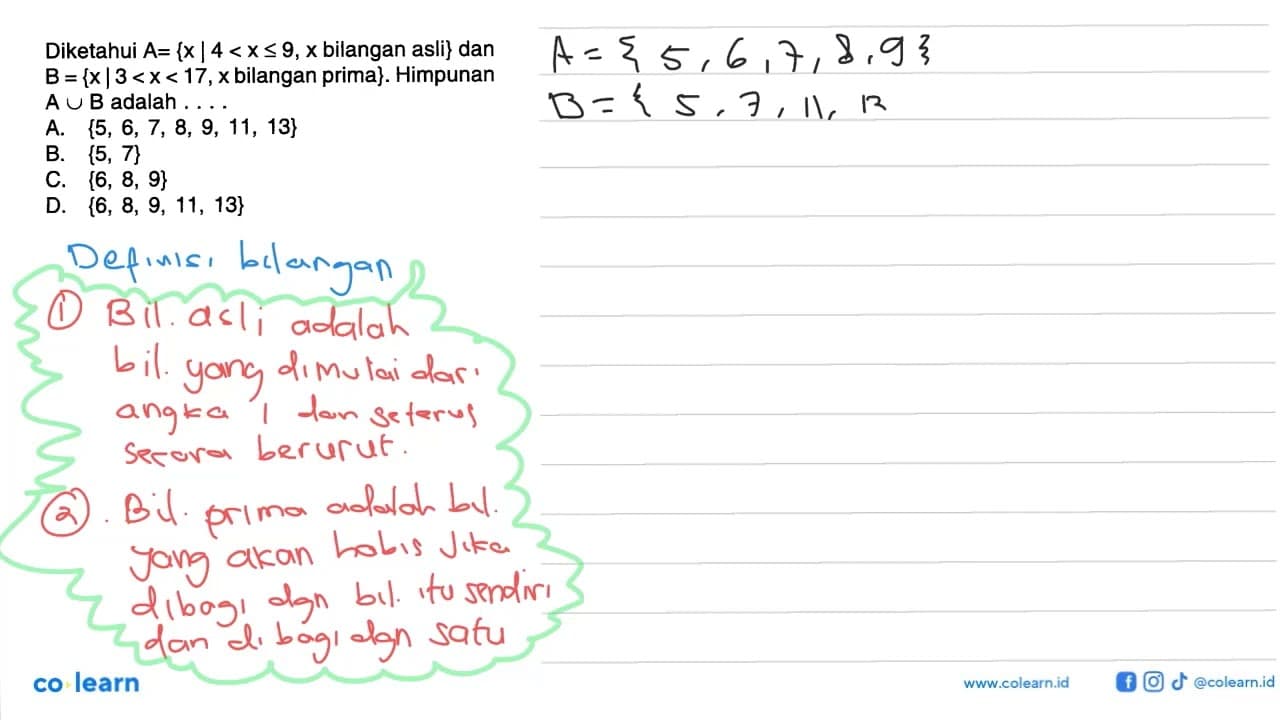 Diketahui A= {x | 4 < x ≤ 9, x bilangan asli} dan
B = {x | 3 < x < 17, x bilangan prima}. Himpunan
A ∪ B adalah . . . .
A. {5, 6, 7, 8, 9, 11, 13}
B. {5, 7}
C. {6, 8, 9}
D. {6, 8, 9, 11, 13}
A = { 5, 6, 7, 8, 9 }
B = { 5, 7, 11, 13
Definisi bilangan
① Bil. asli adalah
bil. yang dimulai dari
angka 1 dan seterus
secara berurut.
②. Bil. prima adalah bil.
yang akan habis jika
dibagi dgn bil. itu sendiri
dan dibagi dgn satu
co learn
www.colearn.id
@colearn.id